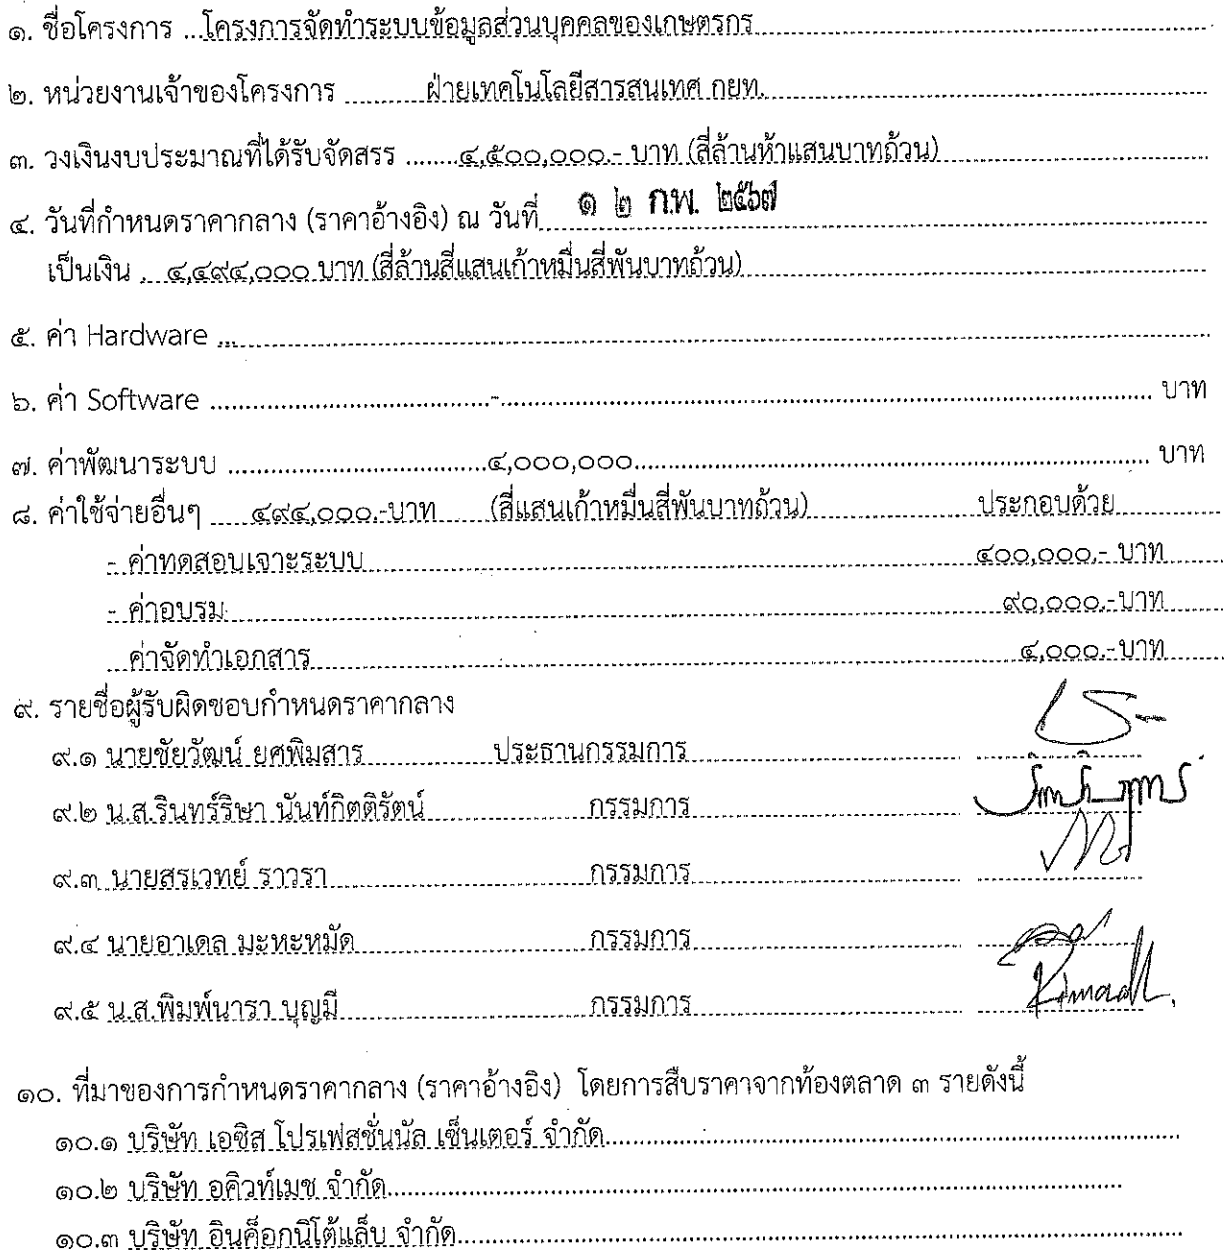 ๑. ชื่อโครงการ ...โครงการจัดทำระบบข้อมูลส่วนบุคคลของเกษตรกร
๒. หน่วยงานเจ้าของโครงการ ........ฝ่ายเทคโนโลยีสารสนเทศ กยท.
๓. วงเงินงบประมาณที่ได้รับจัดสรร ........๔,๕๐๐,๐๐๐.- บาท (สี่ล้านห้าแสนบาทถ้วน)
๔. วันที่กำหนดราคากลาง (ราคาอ้างอิง) ณ วันที่ ๑ ๒ ก.พ. ๒๕๖๗
เป็นเงิน ๔,๔๙๔,๐๐๐ บาท (สี่ล้านสี่แสนเก้าหมื่นสี่พันบาทถ้วน)
๕. ค่า Hardware ...
๖. ค่า Software ........-........ บาท
๗. ค่าพัฒนาระบบ ........๔,๐๐๐,๐๐๐........ บาท
๘. ค่าใช้จ่ายอื่นๆ ๔๙๔,๐๐๐.-บาท (สี่แสนเก้าหมื่นสี่พันบาทถ้วน) ประกอบด้วย
- ค่าทดสอบเจาะระบบ ๔๐๐,๐๐๐.- บาท
- ค่าอบรม ๙๐,๐๐๐.-บาท
ค่าจัดทำเอกสาร ๔,๐๐๐.-บาท
๙. รายชื่อผู้รับผิดชอบกำหนดราคากลาง
๙.๑ นายชัยวัฒน์ ยศพิมสาร ประธานกรรมการ
๙.๒ น.ส.รินทร์ริษา นันท์กิตติรัตน์ กรรมการ
๙.๓ นายสรเวทย์ ราวรา กรรมการ
๙.๔ นายอาเดล มะหะหมัด กรรมการ
๙.๕ น.ส.พิมพ์นารา บุญมี กรรมการ
๑๐. ที่มาของการกำหนดราคากลาง (ราคาอ้างอิง) โดยการสืบราคาจากท้องตลาด ๓ รายดังนี้
๑๐.๑ บริษัท เอซิส โปรเฟสชั่นนัล เซ็นเตอร์ จำกัด
๑๐.๒ บริษัท อคิวท์เมช จำกัด
๑๐.๓ บริษัท อินค็อกนิโต้แล็บ จำกัด